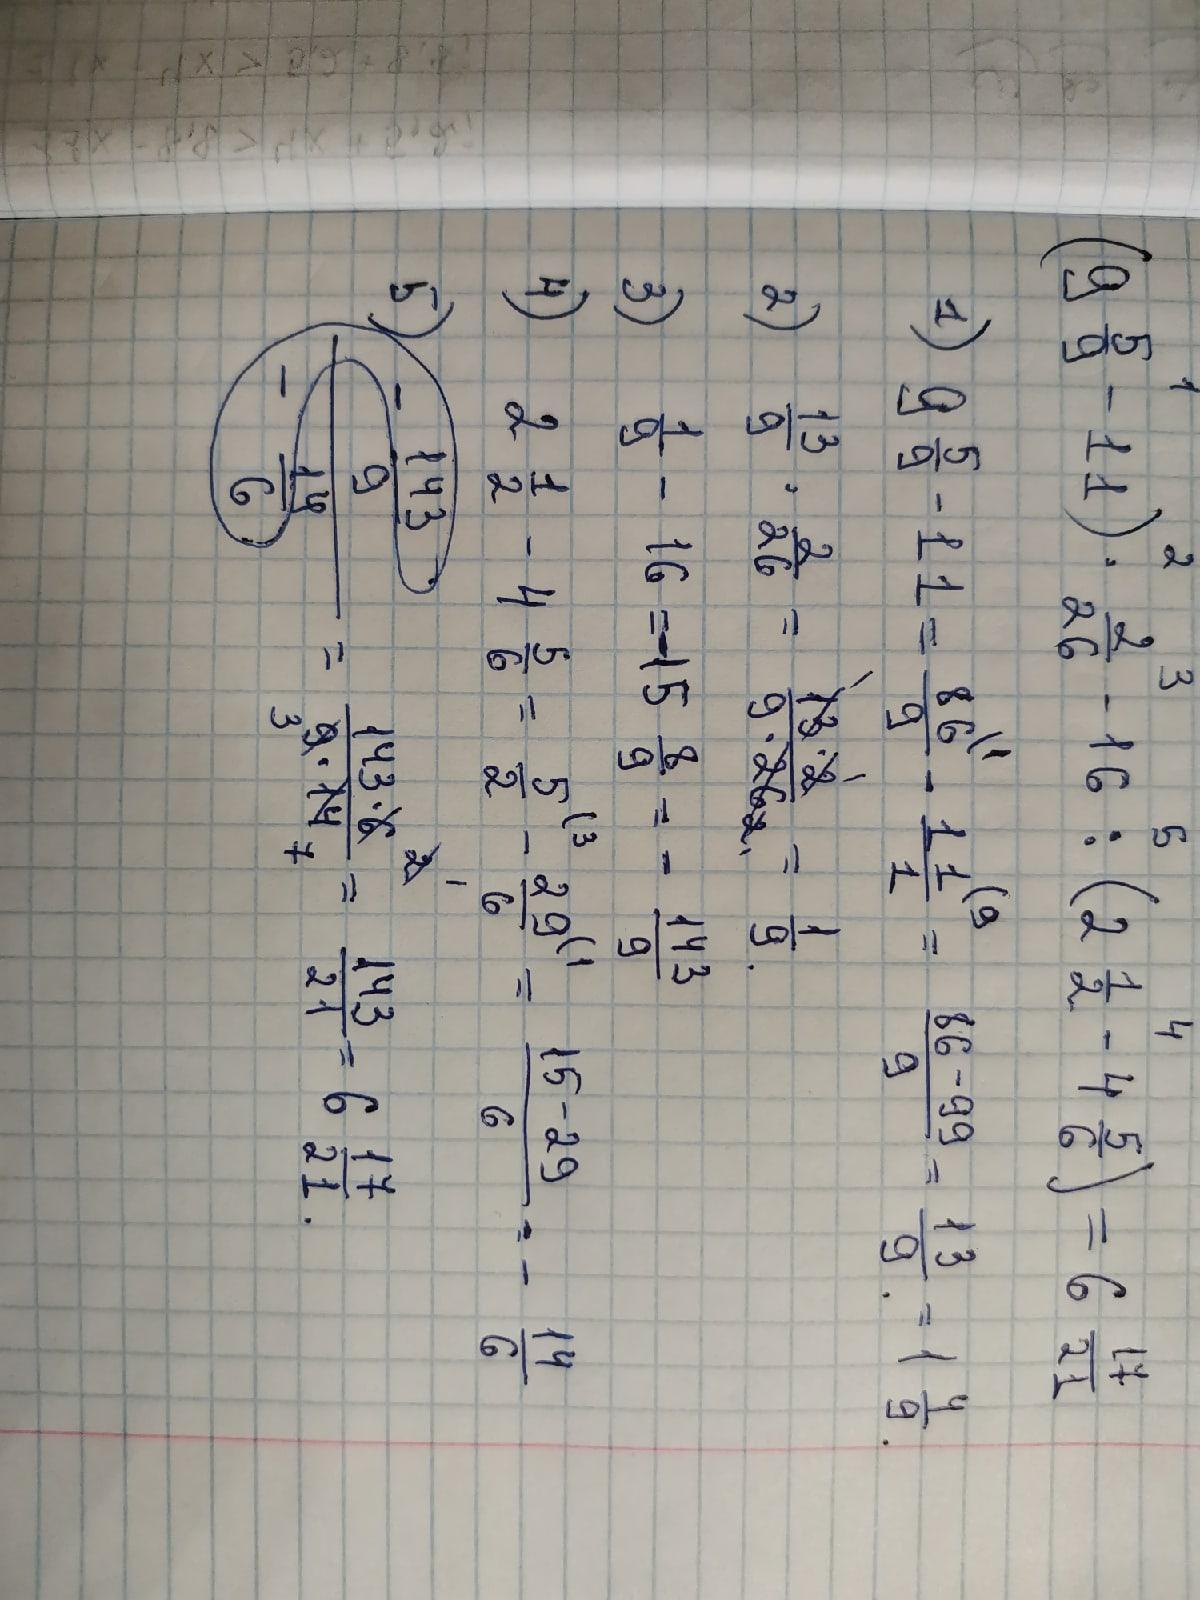 (9 5/9 - 11) · 2/26 - 16 : (2 1/2 - 4 5/6) = 6 17/21
1) 9 5/9 - 11 = 86/9 - 11/1 = 86-99/9 = 13/9 . = 1 4/9 .
2) 13/9 · 2/26 = 13·2/9·26 = 1/9 .
3) 1/9 - 16 = -15 8/9 = - 143/9
4) 2 1/2 - 4 5/6 = 5/2 - 29/6 = 15-29/6 = - 14/6
5) - 143/9 / - 14/6 = 143·6/9·14 = 143/21 = 6 17/21 .